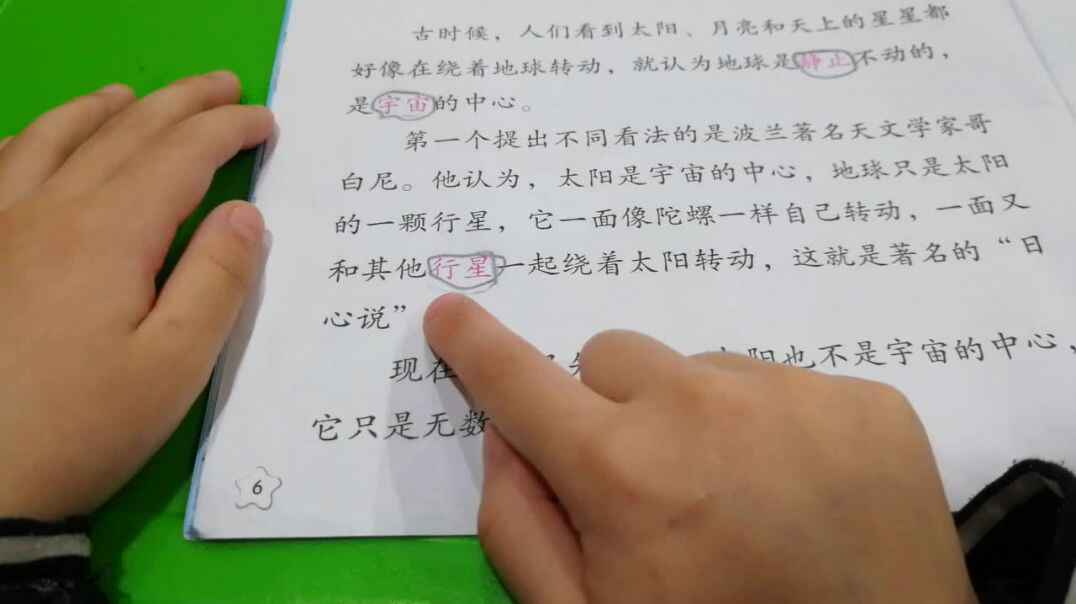 古时候，人们看到太阳、月亮和天上的星星都
好像在绕着地球转动，就认为地球是静止不动的，
是宇宙的中心。
第一个提出不同看法的是波兰著名天文学家哥
白尼。他认为，太阳是宇宙的中心，地球只是太阳
的一颗行星，它一面像陀螺一样自己转动，一面又
和其他行星一起绕着太阳转动，这就是著名的“日
心说”
现在 阳也不是宇宙的中心，
它只是无数
6